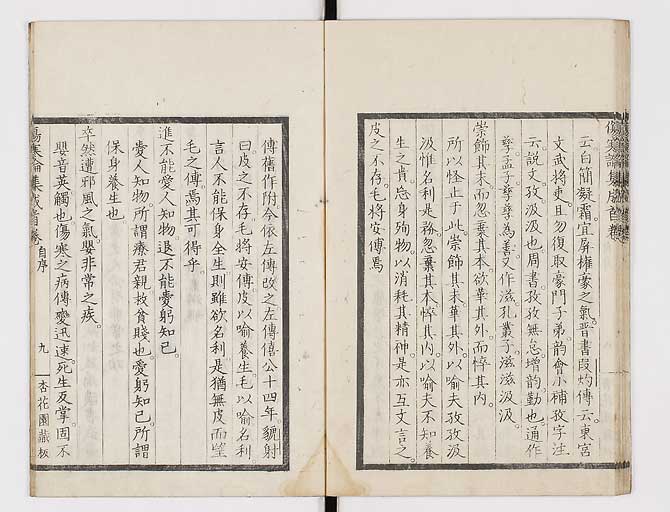 云白簡凝霜宜屏權豪之氣晉書段灼傳云東宮
文武將吏且勿復取豪門子弟韵會小補孜字注
云說文孜汲汲也周書孜孜無怠增韵勤也通作
孳孟子孳孳為善又作滋孔叢子滋滋汲汲
崇飾其末而忽棄其本欲華其外而悴其内
所以怪止于此崇飾其末華其外以喻夫孜孜汲
汲惟名利是務忽棄其本悴其内以喻夫不知養
生之貴忘身殉物以消耗其精神是亦互文言之
皮之不存毛將安傅焉
傳舊作附今依左傳改之左傳僖公十四年貌射
曰皮之不存毛將安傅皮以喻養生毛以喻名利
言人不能保身全生則雖欲名利是猶無皮而望
毛之傅焉其可得乎
進不能愛人知物退不能愛躬知已
愛人知物所謂療君親救貧賤也愛躬知已所謂
保身養生也
卒然遭邪風之氣嬰非常之疾
嬰音英觸也傷寒之病傳變迅速死生反掌固不
傷寒論集成首卷 自序 九 杏花園藏板